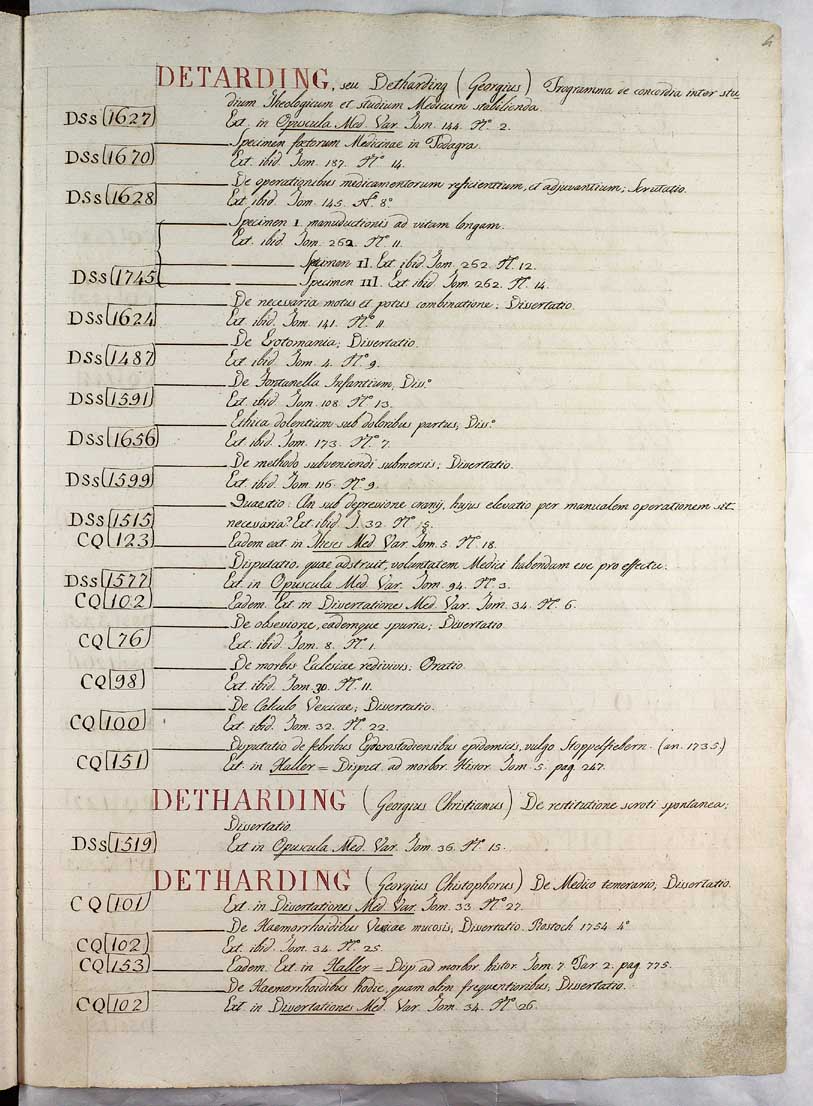 DETARDING, seu Detharding (Georgius) Programma de concordia inter stu-
dium Theologicum et studium Medicum stabilienda.
DSs 1627 Ext. in Opuscula Med. Var. Tom. 144. N.º 2.
Specimen fœtorum Medicinae in Podagra.
DSs 1670 Ext. ibid. Tom. 187. N.º 14.
De operationibus medicamentorum reficientium, et adjuvantium; Scrutatio.
DSs 1628 Ext. ibid. Tom. 145. N.º 8º
Specimen I. manuductionis ad vitam longam.
Ext. ibid. Tom. 262. N.º 11.
Specimen II. Ext. ibid. Tom. 262. N. 12.
DSs 1745 Specimen III. Ext. ibid. Tom. 262. N.º 14.
De necessaria motus et potus combinatione; Dissertatio.
DSs 1624 Ext. ibid. Tom. 141. N.º 11.
De Erotomania; Dissertatio.
DSs 1487 Ext. ibid. Tom. 4. N.º 9.
De Fontanella Infantium, Diss.º
DSs 1591 Ext. ibid. Tom. 108. N.º 13.
Ethica dolentium sub doloribus partus; Diss.º
DSs 1656 Ext. ibid. Tom. 173. N.º 7.
De methodo subveniendi submersis; Dissertatio.
DSs 1599 Ext. ibid. Tom. 116. N.º 9.
Quaestio: An sub depressione cranij, hujus elevatio per manualem operationem sit
DSs 1515 necessaria? Ext. ibid. T. 32. N.º 15.
CQ 123 Eadem ext. in Theses Med. Var. Tom. 5. N.º 18.
Disputatio, quae adstruit, voluntatem Medici habendam esse pro effectu.
DSs 1577 Ext. in Opuscula Med. Var. Tom. 94. N.º 3.
CQ 102 Eadem. Ext. in Dissertationes Med. Var. Tom. 34. N.º 6.
De obsessione, eademque spuria; Dissertatio.
CQ 76 Ext. ibid. Tom. 8. N.º 1.
De morbis Eclesiae redivivis; Oratio.
CQ 98 Ext. ibid. Tom. 30. N.º 11.
De Calculo Vesicae; Dissertatio.
CQ 100 Ext. ibid. Tom. 32. N.º 22.
Disputatio de febribus Eyderostadiensibus epidemicis, vulgo Stoppelfiebern. (an. 1735.)
CQ 151 Ext. in Haller = Disput. ad morbor. Histor. Tom. 5. pag. 247.
DETHARDING (Georgius Christianus) De restitutione scroti spontanea;
Dissertatio.
DSs 1519 Ext. in Opuscula Med. Var. Tom. 36. N.º 15.
DETHARDING (Georgius Chistophorus) De Medico temerario, Dissertatio.
CQ 101 Ext. in Dissertationes Med. Var. Tom. 33. N.º 27.
De Haemorrhoidibus Vesicae mucosis; Dissertatio. Rostoch. 1754. 4º
CQ 102 Ext. ibid. Tom. 34. N.º 25.
CQ 153 Eadem. Ext. in Haller = Disp. ad morbor. histor. Tom. 7. Par. 2. pag. 775.
De Haemorrhoidibus hodie, quam olim frequentioribus; Dissertatio.
CQ 102 Ext. in Dissertationes Med. Var. Tom. 34. N.º 26.